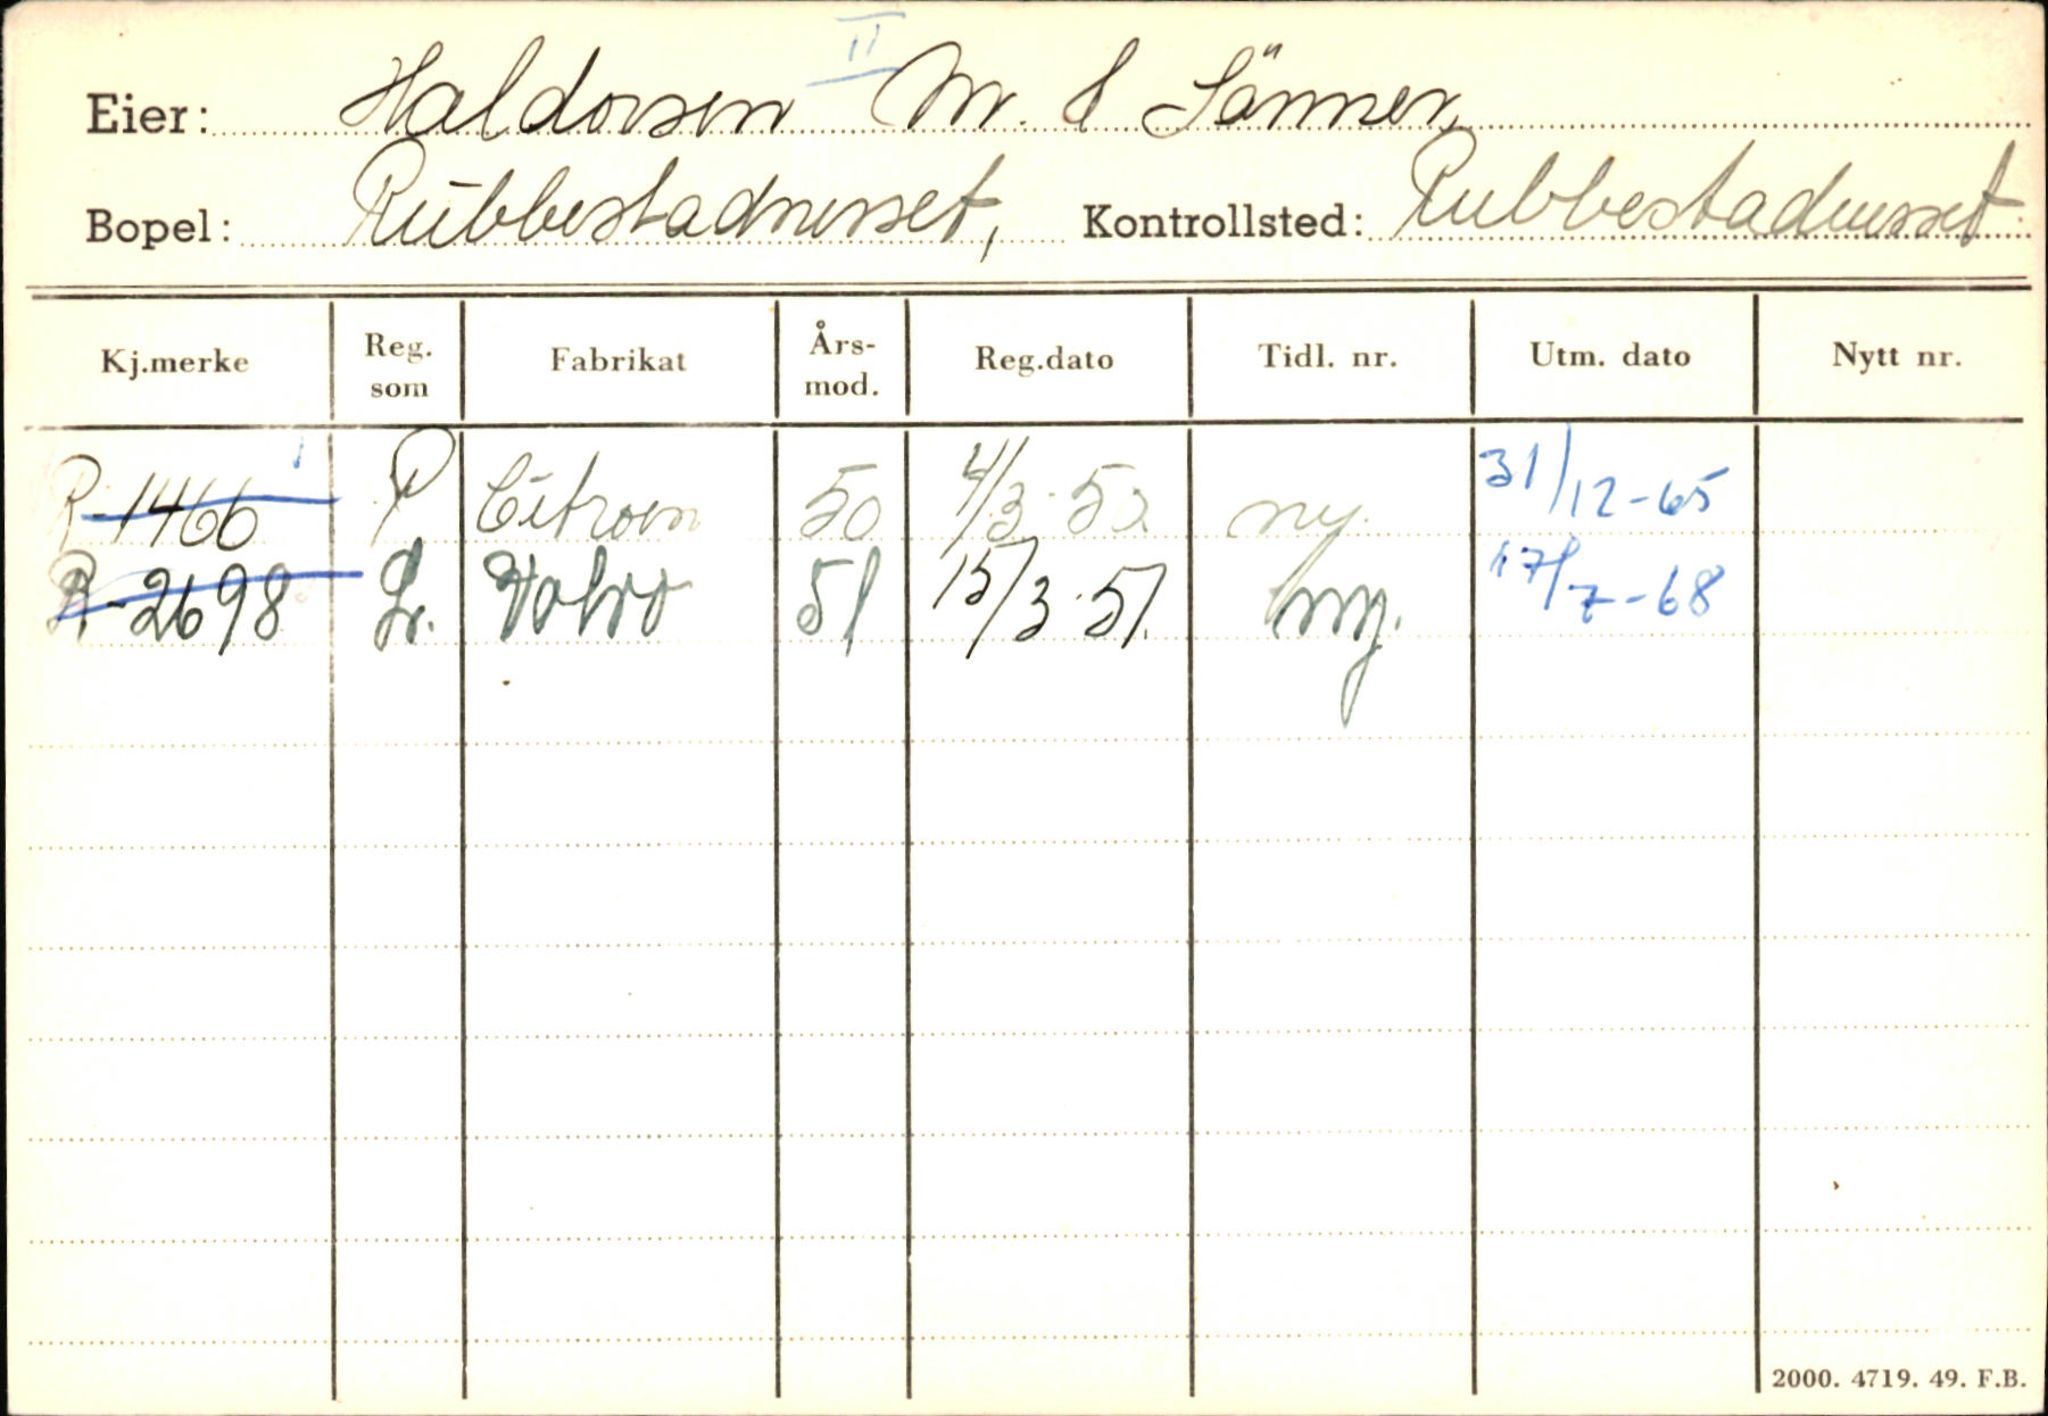 II
Eier: Haldorsen M. & Sönner,
Bopel: Rubbestadnesset, Kontrollsted: Rubbestadnesset
Kj.merke Reg. som Fabrikat Års-mod. Reg.dato Tidl. nr. Utm. dato Nytt nr.
R-1466 P Citroen 50 4/3-50 ny. 31/12-65
R-2698 L. Volvo 51 15/3-51. ny. 17/7-68
2000. 4719. 49. F.B.